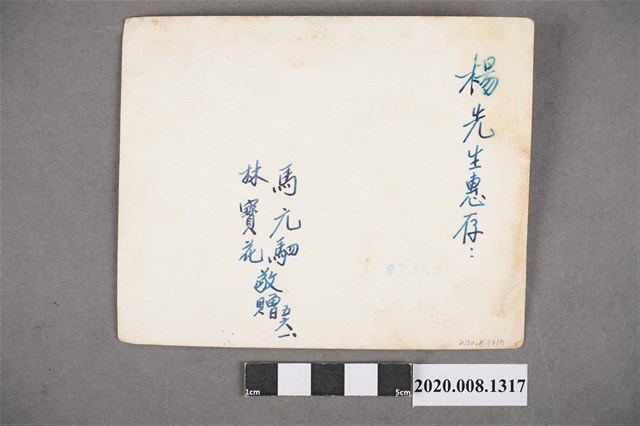 楊先生惠存：
馬元駟
林寶花
敬贈
五六、一、
2020.8.1317
1cm
5cm
2020.008.1317